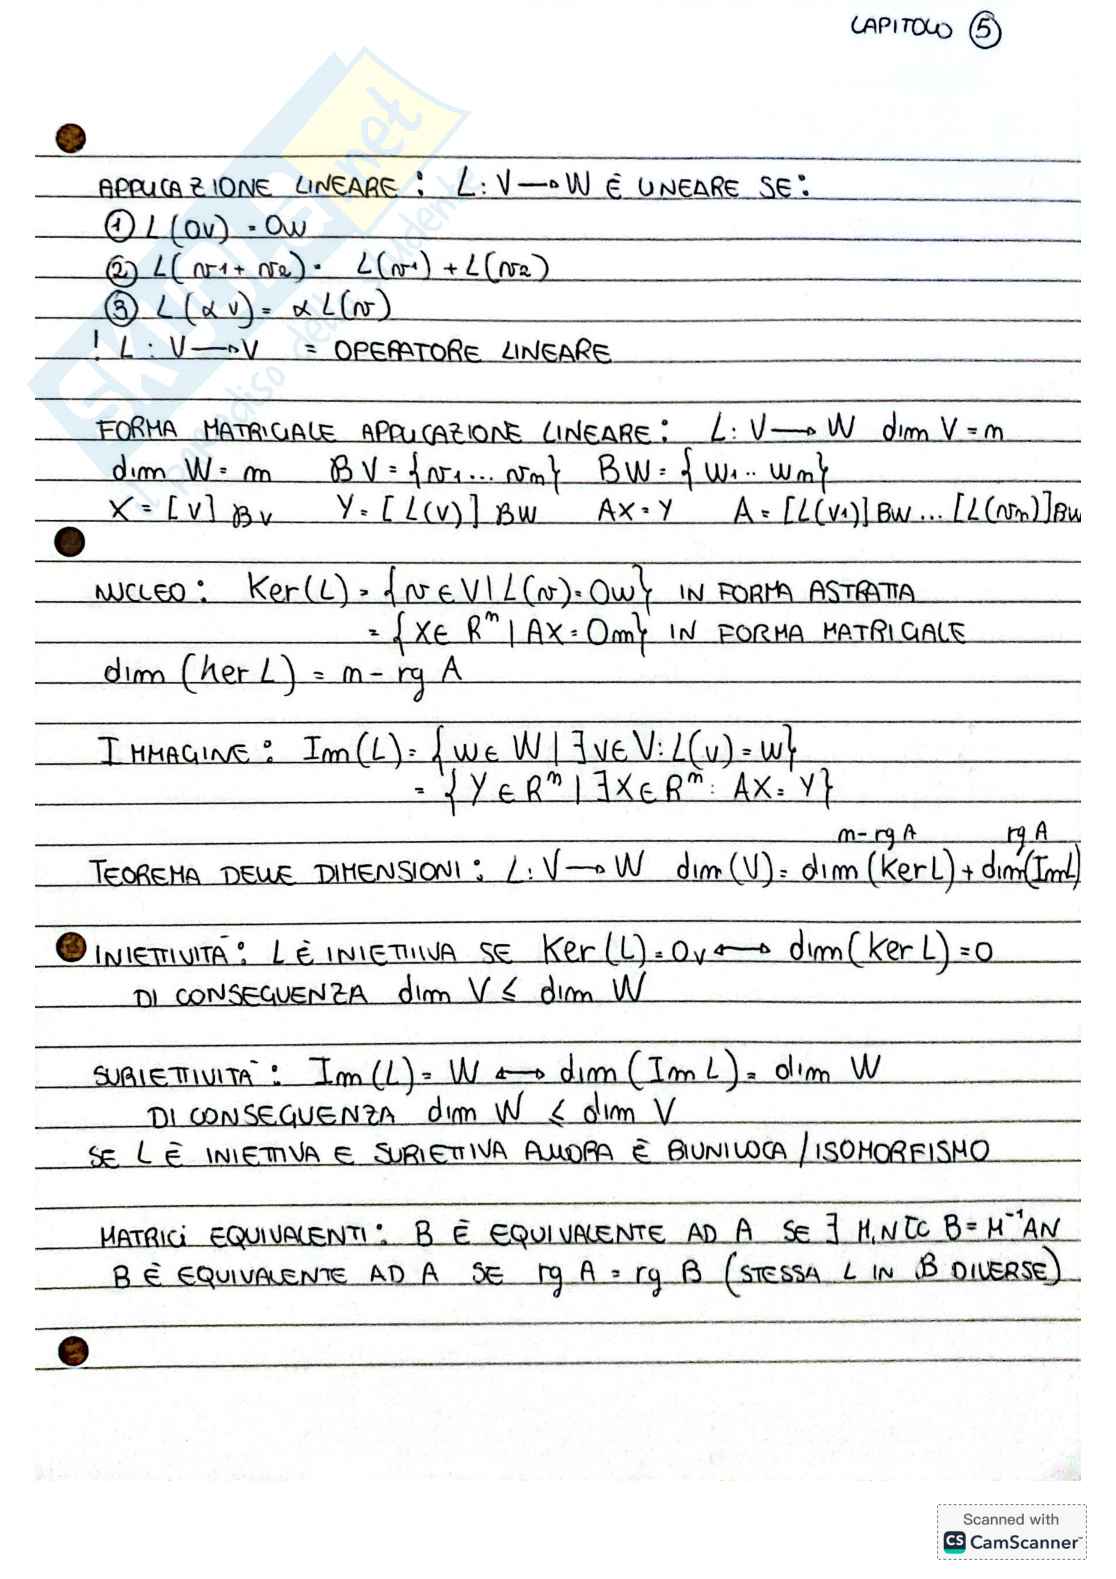 CAPITOLO ⑤
APPLICAZIONE LINEARE : L : V → W È LINEARE SE :
① L(0v) = 0w
② L(v1 + v2) = L(v1) + L(v2)
③ L(αv) = αL(v)
! L : V → V = OPERATORE LINEARE
FORMA MATRICIALE APPLICAZIONE LINEARE : L : V → W dim V = n
dim W = m BV = {v1 ... vn} BW = {w1 .. wm}
X = [v] BV Y = [L(v)] BW AX = Y A = [L(v1)] BW ... [L(vn)] BW
NUCLEO : Ker(L) = {v ∈ V | L(v) = 0w} IN FORMA ASTRATTA
= {X ∈ Rⁿ | AX = 0m} IN FORMA MATRICIALE
dim (ker L) = n - rg A
IMMAGINE : Im(L) = {w ∈ W | ∃ v ∈ V : L(v) = w}
= {Y ∈ Rᵐ | ∃ X ∈ Rⁿ : AX = Y}
n - rg A rg A
TEOREMA DELLE DIMENSIONI : L : V → W dim(V) = dim(ker L) + dim(Im L)
INIETTIVITÀ : L È INIETTIVA SE Ker(L) = 0v ↔ dim(ker L) = 0
DI CONSEGUENZA dim V ≤ dim W
SURIETTIVITÀ : Im(L) = W ↔ dim(Im L) = dim W
DI CONSEGUENZA dim W ≤ dim V
SE L È INIETTIVA E SURIETTIVA ALLORA È BIUNIVOCA / ISOMORFISMO
MATRICI EQUIVALENTI : B È EQUIVALENTE AD A SE ∃ M, N TC B = M⁻¹AN
B È EQUIVALENTE AD A SE rg A = rg B (STESSA L IN B DIVERSE)
SKUOLA.net
il paradiso dello studente
Scanned with
CS CamScanner